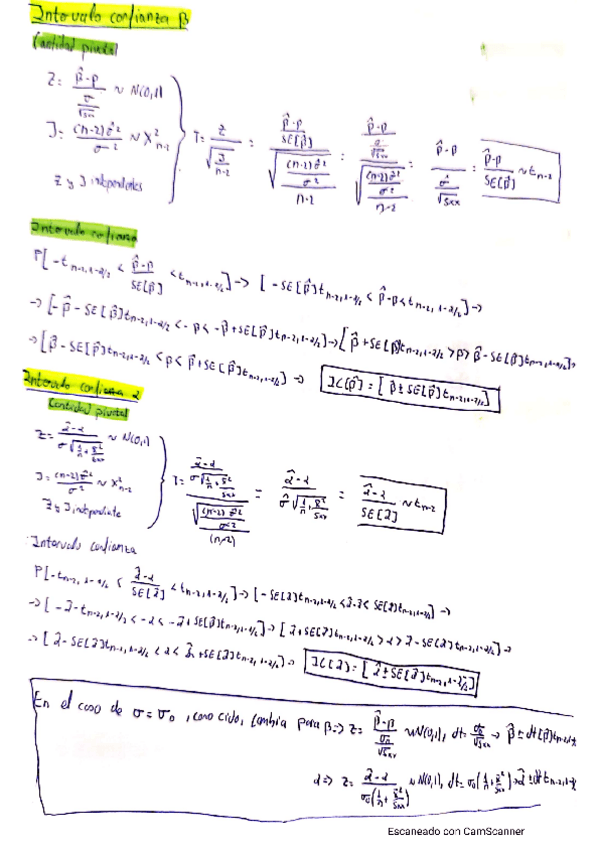 Intervalo confianza β
Cantidad pivotal
Z = (β̂-β)/(σ/√Sxx) ~ N(0,1)
J = (n-2)σ̂²/σ² ~ X²n-2
Z y J independientes
T = Z/√(J/(n-2)) = ((β̂-β)/SE[β̂])/√(((n-2)σ̂²/σ²)/(n-2)) = ((β̂-β)/(σ/√Sxx))/√(((n-2)σ̂²/σ²)/(n-2)) = (β̂-β)/(σ̂/√Sxx) = (β̂-β)/SE[β̂] ~ tn-2
Intervalo confianza
P[-tn-2,1-α/2 < (β̂-β)/SE[β̂] < tn-2,1-α/2] → [-SE[β̂]tn-2,1-α/2 < β̂-β < tn-2,1-α/2] →
→ [-β̂-SE[β̂]tn-2,1-α/2 < -β < -β̂+SE[β̂]tn-2,1-α/2] → [β̂+SE[β̂]tn-2,1-α/2 > β > β̂-SE[β̂]tn-2,1-α/2] →
→ [β̂-SE[β̂]tn-2,1-α/2 < β < β̂+SE[β̂]tn-2,1-α/2] → IC(β̂) = [β̂±SE[β̂]tn-2,1-α/2]
Intervalo confianza α
Cantidad pivotal
Z = (α̂-α)/(σ√(1/n+x̄²/Sxx)) ~ N(0,1)
J = (n-2)σ̂²/σ² ~ X²n-2
Z y J independiente
T = ((α̂-α)/(σ√(1/n+x̄²/Sxx)))/√(((n-2)σ̂²/σ²)/(n-2)) = (α̂-α)/(σ̂√(1/n+x̄²/Sxx)) = (α̂-α)/SE[α̂] ~ tn-2
Intervalo confianza
P[-tn-2,1-α/2 < (α̂-α)/SE[α̂] < tn-2,1-α/2] → [-SE[α̂]tn-2,1-α/2 < α̂-α < SE[α̂]tn-2,1-α/2] →
→ [-α̂-tn-2,1-α/2 < -α < -α̂+SE[β̂]tn-2,1-α/2] → [α̂+SE[α̂]tn-2,1-α/2 > α > α̂-SE[α̂]tn-2,1-α/2] →
→ [α̂-SE[α̂]tn-2,1-α/2 < α < α̂+SE[α̂]tn-2,1-α/2] → IC(α̂) = [α̂±SE[α̂]tn-2,1-α/2]
En el caso de σ=σ₀, conocido, cambia para β => Z = (β̂-β)/(σ₀/√Sxx) ~ N(0,1), dt= σ₀/√Sxx → β̂±dt(β̂)tn-2,1-α/2
α => Z = (α̂-α)/(σ₀(1/n+x̄²/Sxx)) ~ N(0,1), dt= σ₀(1/n+x̄²/Sxx) → α̂±dt tn-2,1-α/2
Escaneado con CamScanner